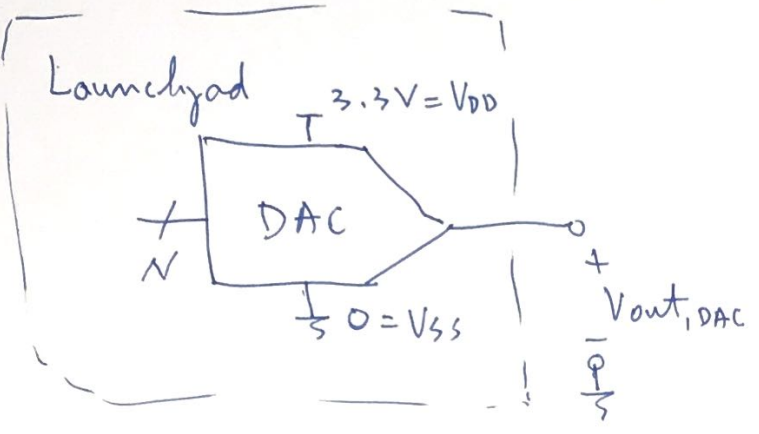 Launchpad
3.3V = VDD
DAC
N
0 = VSS
+
Vout, DAC
-